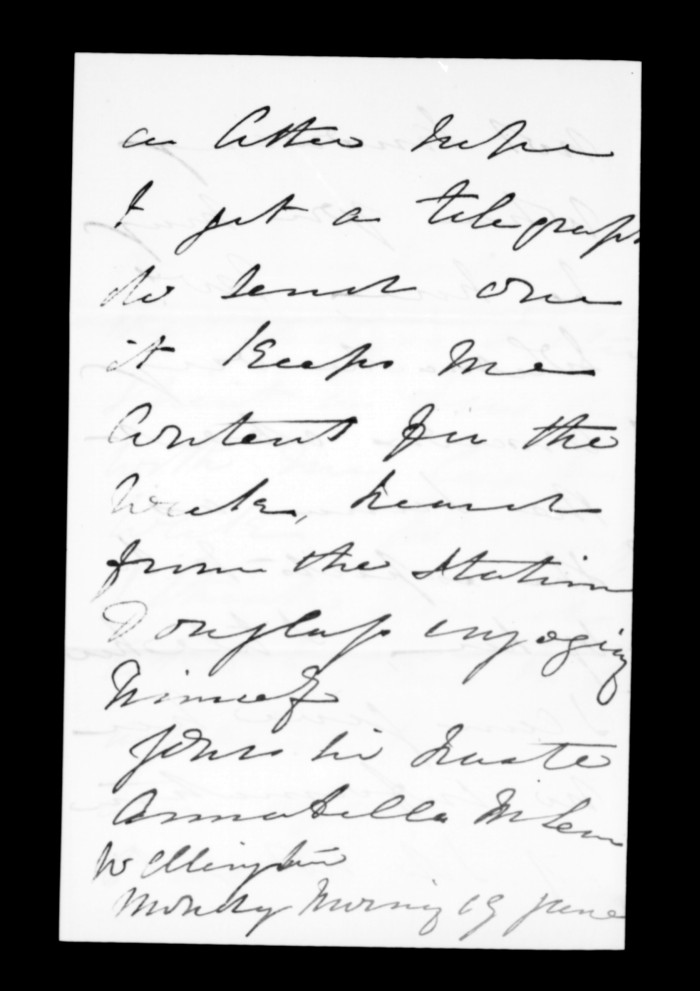 a letter before
I get a telegraph
do send one
it Keeps me
Content for the
week, heard
from the Station
Douglass enjoging
himself
yours in haste
Annabella McLean
Wellington
Monday Morning 19 June